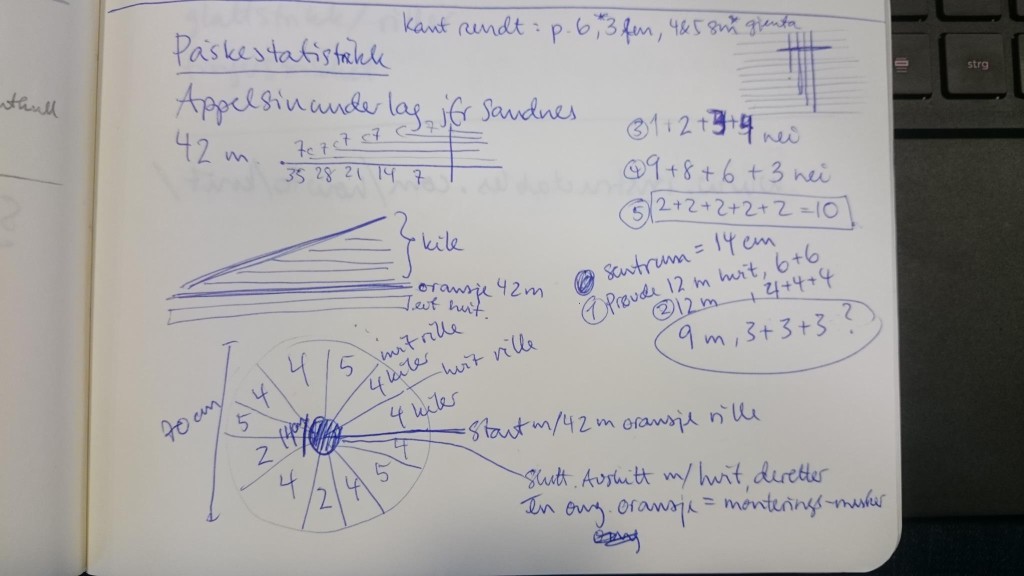 Kant rundt = p. 6, *3 fm, 4&5 sm* gjenta
Påskestatistrikk
Appelsinunderlag, jfr Sandnes
42 m
7 c 7 c 7 c 7 c 7
35 28 21 14 7
③ 1+2+3+4 nei
④ 9+8+6+3 nei
⑤ 2+2+2+2+2=10
kile
oransje 42 m
evt hvit
Sentrum = 14 cm
① Prøvde 12 m hvit, 6+6
② 12 m, 4+4+4
9 m, 3+3+3 ?
70 cm
hvit rille
4 kiler
hvit rille
4 kiler
5
4
4
5
2
4
2
4
5
4
14
Start m/42 m oransje rille
Slutt. Avslutt m/hvit, deretter
én omg. oransje = monterings-masker
strg